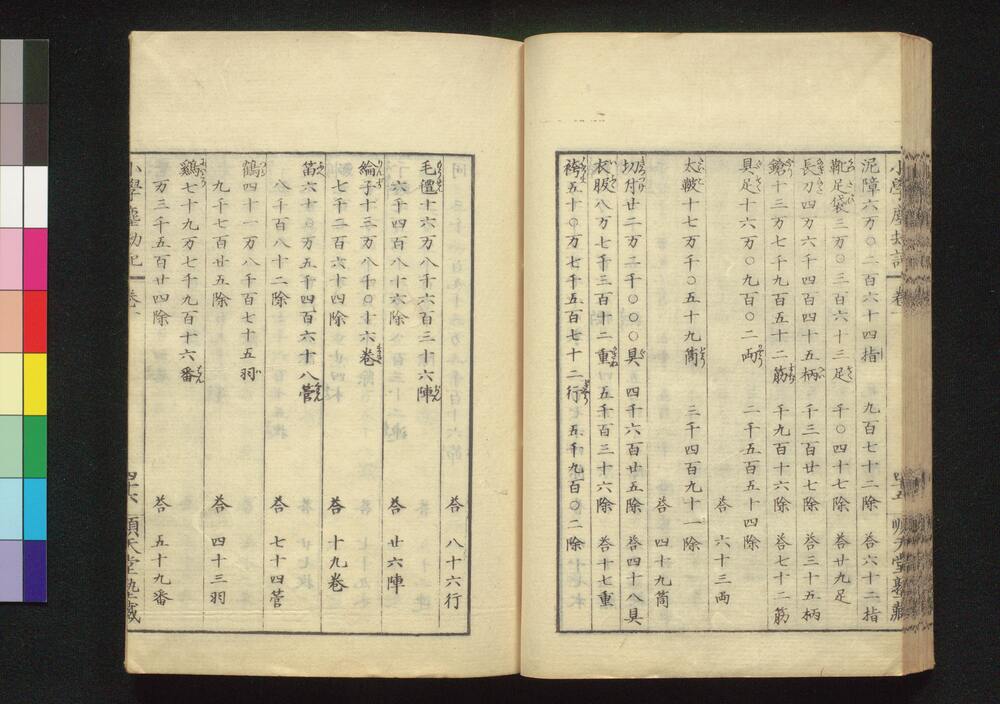 小學塵劫記 卷一 四十五 順天堂塾藏
泥障六万〇二百六十四指 九百七十二除 荅六十二指
靴足袋三万〇三百六十三足 千〇四十七除 荅廿九足
長刀四万六千四百四十五柄 千三百廿七除 荅三十五柄
鎗十三万七千九百五十二筋 千九百十六除 荅七十二筋
具足十六万〇九百〇二両 二千五百五十四除
荅 六十三両
太皷十七万千〇五十九筒 三千四百九十一除
荅 四十九筒
切付廿二万二千〇〇〇具 四千六百廿五除 荅四十八具
衣服八万七千三百十二重 五千百三十六除 荅十七重
袴五十〇万七千五百七十二行 五千九百〇二除
荅 八十六行
毛氈十六万八千六百三十六陣
六千四百八十六除 荅 廿六陣
綸子十三万八千〇十六卷
七千二百六十四除 荅 十九卷
笛六十〇万五千四百六十八管
八千百八十二除 荅 七十四管
鶴四十一万八千百七十五羽
九千七百廿五除 荅 四十三羽
鷄七十九万七千九百十六番
万三千五百廿四除 荅 五十九番
小學塵劫記 卷一 四十六 順天堂塾藏